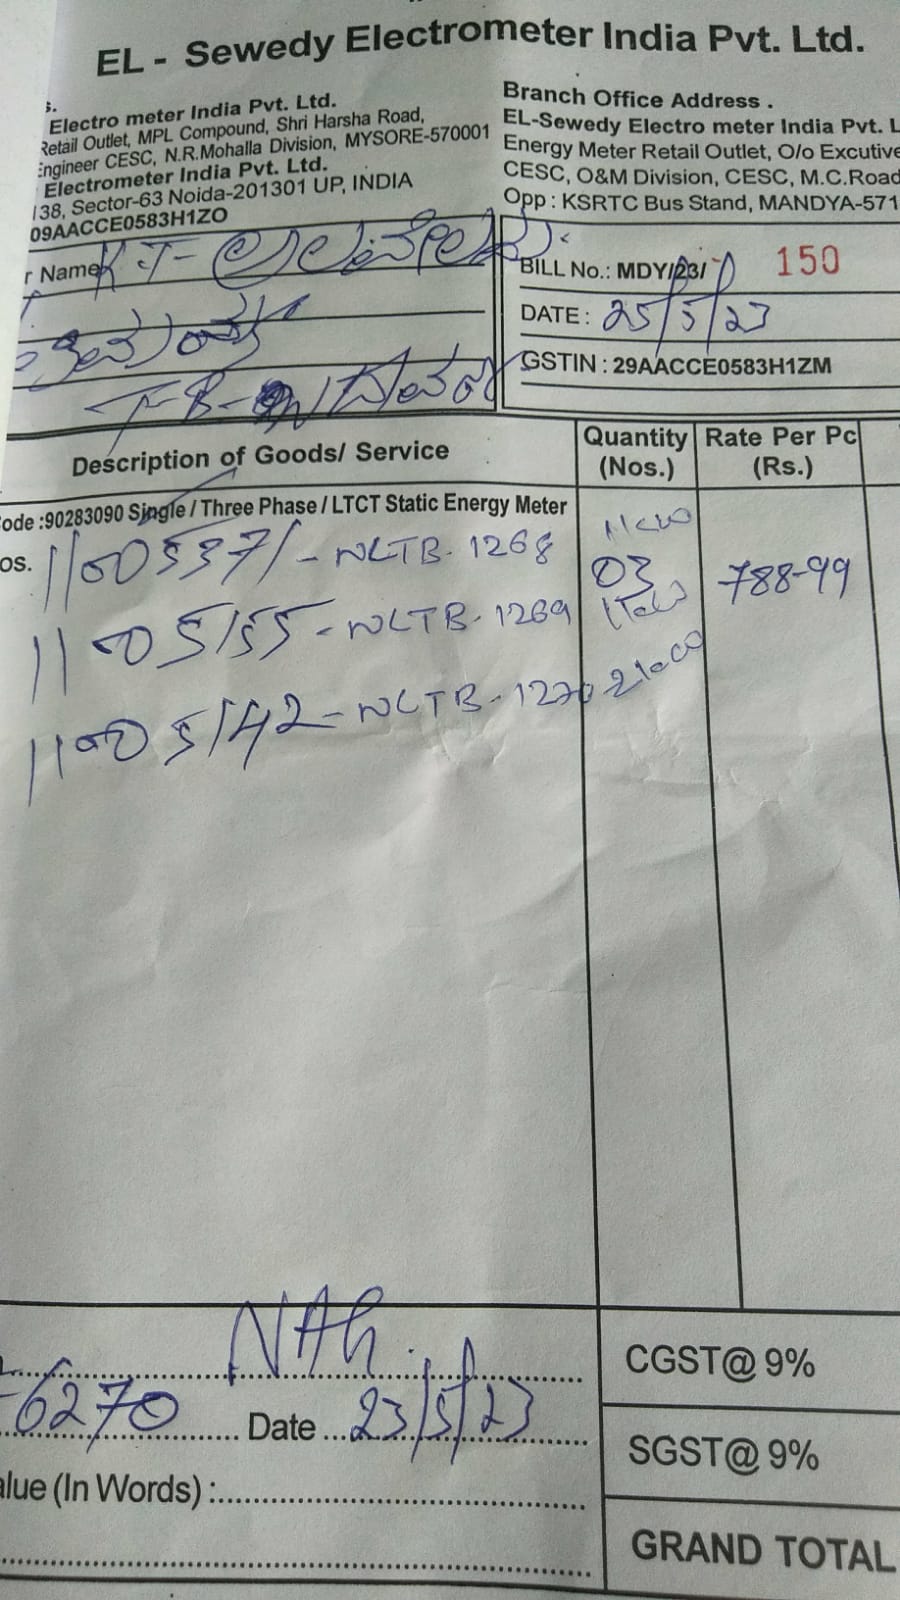 EL - Sewedy Electrometer India Pvt. Ltd.
s.
Electro meter India Pvt. Ltd.
Retail Outlet, MPL Compound, Shri Harsha Road,
Engineer CESC, N.R.Mohalla Division, MYSORE-570001
Electrometer India Pvt. Ltd.
138, Sector-63 Noida-201301 UP, INDIA
09AACCE0583H1ZO
Branch Office Address .
EL-Sewedy Electro meter India Pvt. L
Energy Meter Retail Outlet, O/o Excutive
CESC, O&M Division, CESC, M.C.Road
Opp : KSRTC Bus Stand, MANDYA-571
r Name K-T-
T-B-
BILL No.: MDY/23/ 150
DATE : 25/5/23
GSTIN : 29AACCE0583H1ZM
Description of Goods/ Service
Quantity (Nos.)
Rate Per Pc (Rs.)
ode :90283090 Single / Three Phase / LTCT Static Energy Meter
os. 11005371-NLTB-1268
03 788-99
11005155-NLTB-1269
11005142-NLTB-1270
CGST@ 9%
6270 Date 23/5/23
SGST@ 9%
alue (In Words) :
GRAND TOTAL